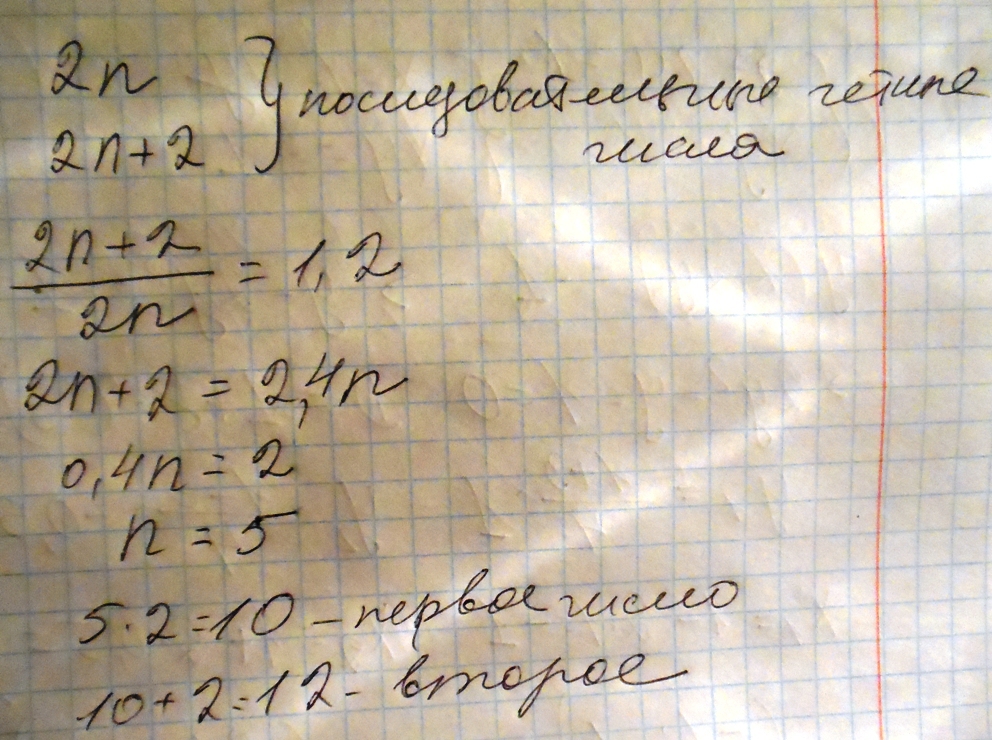 2n
2n+2 } последовательные чётные
числа
2n+2
―――― = 1,2
2n
2n+2 = 2,4n
0,4n = 2
n = 5
5·2=10 – первое число
10+2=12 – второе